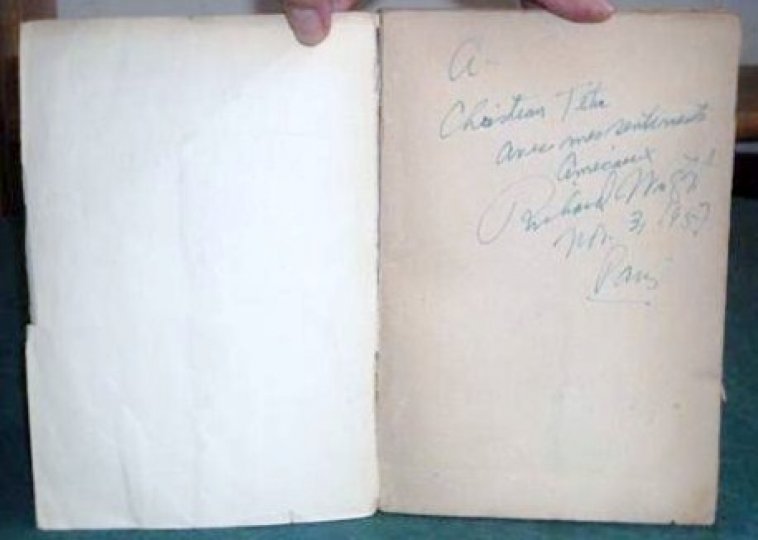 A
Christian Téha
avec mes sentiments
amicaux
Richard Wright
Nov. 3, 1957
Paris